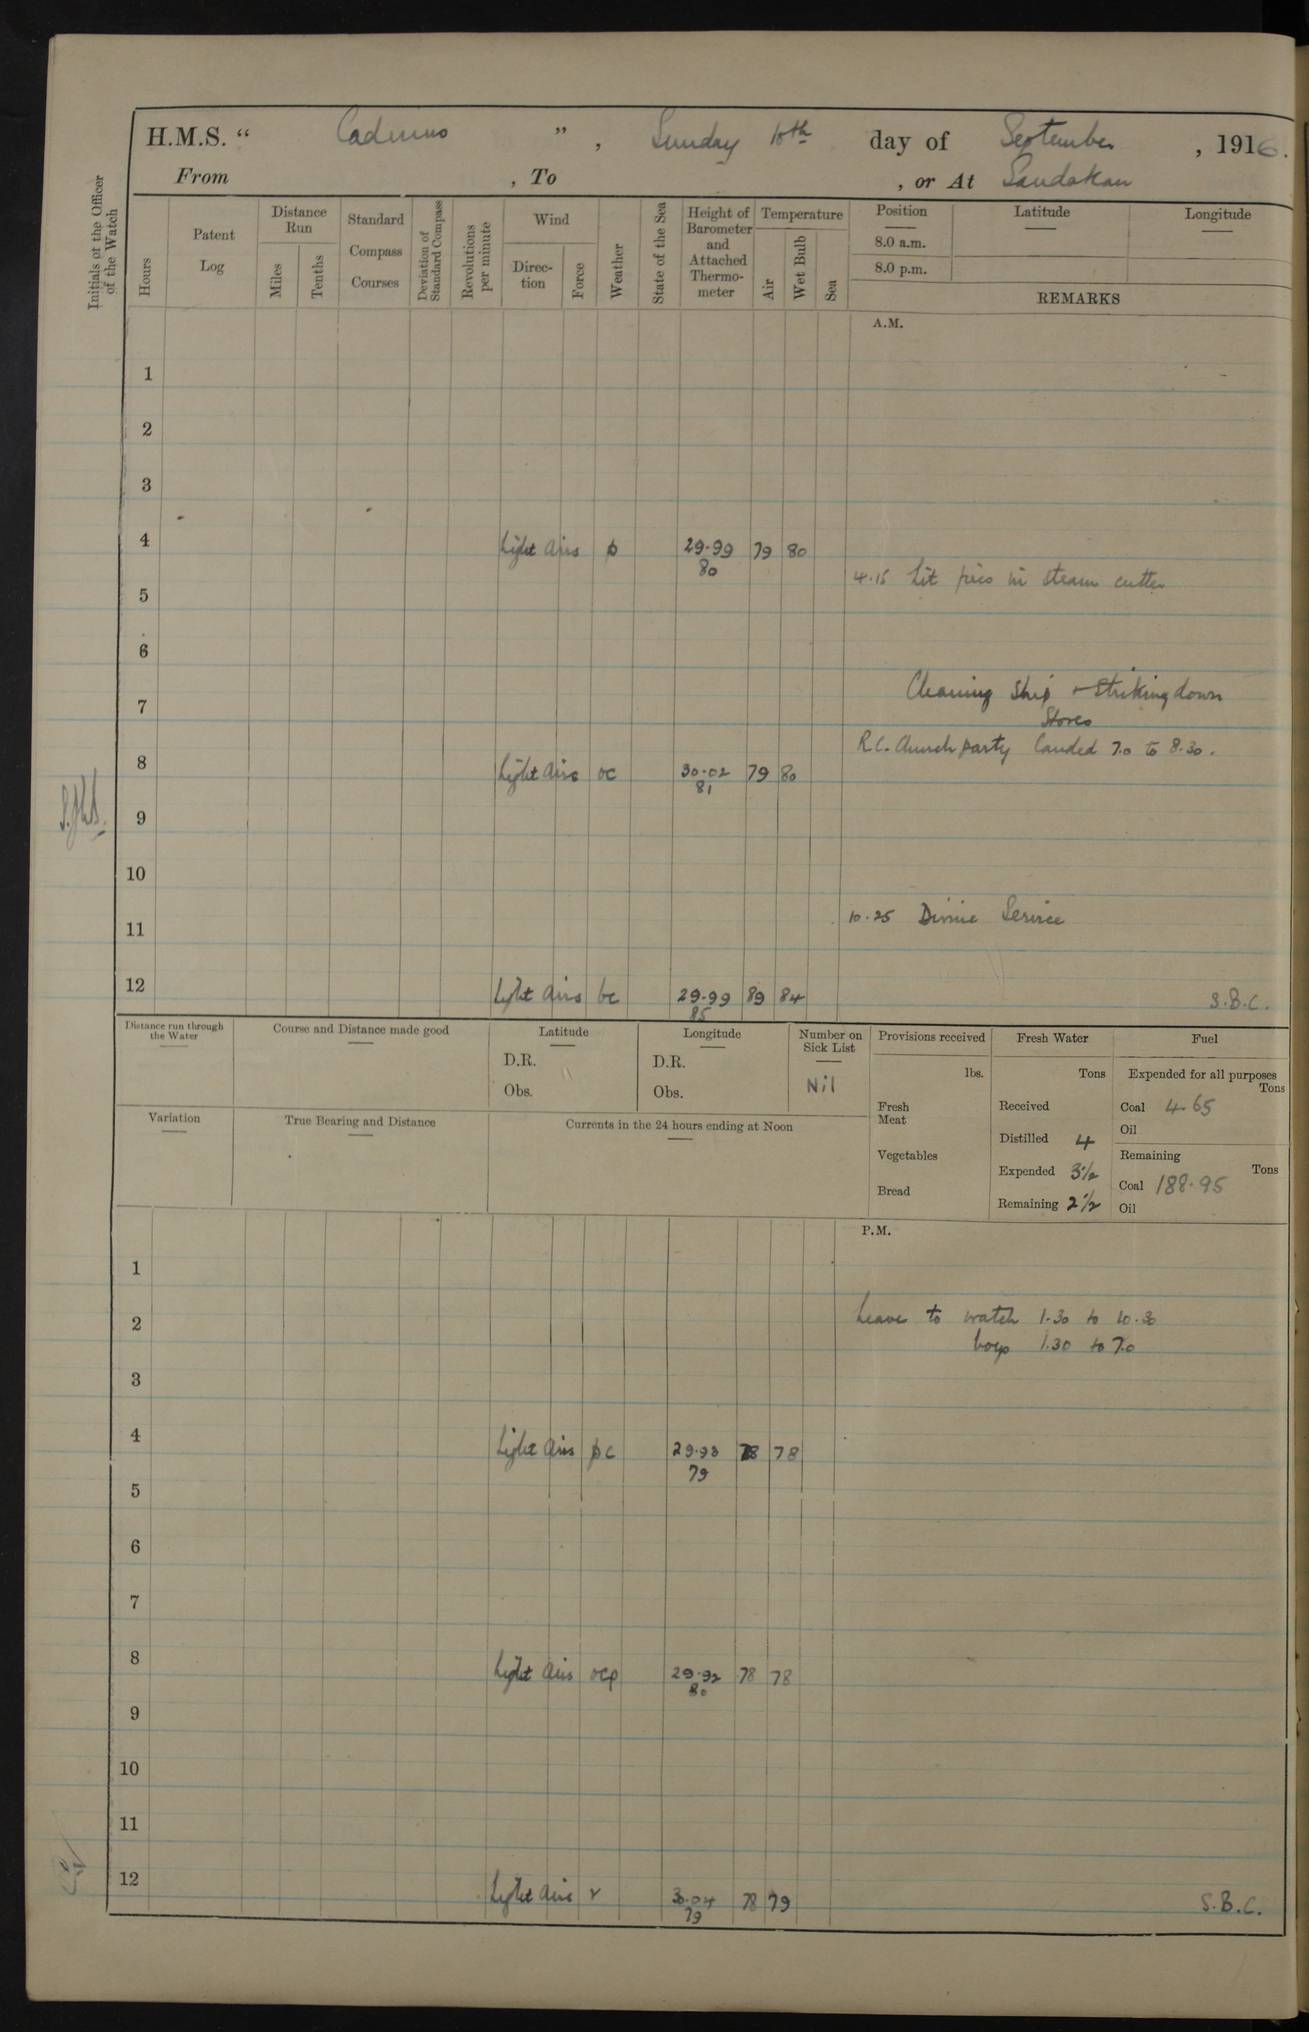 H.M.S. “ Cadmus ”, Sunday 10th day of September, 1916.
From , To , or At Sandakan
Initials of the Officer of the Watch
Hours
Patent Log
Distance Run
Miles
Tenths
Standard Compass Courses
Deviation of Standard Compass
Revolutions per minute
Wind
Direc-tion
Force
Weather
State of the Sea
Height of Barometer and Attached Thermo-meter
Temperature
Air
Wet Bulb
Sea
Position
8.0 a.m.
8.0 p.m.
Latitude
Longitude
REMARKS
A.M.
1
2
3
4 Light airs p 29.99 79 80
80
4.15 Lit fires in steam cutter
5
6
Cleaning Ship & Striking down
7
Stores
R.C. Church party landed 7.0 to 8.30.
8 Light airs oc 30.02 79 80
81
9
10
10.25 Divine Service
11
12 Light airs bc 29.99 89 84 S.B.C.
85
Distance run through the Water
Course and Distance made good
Latitude
D.R.
Obs.
Longitude
D.R.
Obs.
Number on Sick List
Nil
Variation
True Bearing and Distance
Currents in the 24 hours ending at Noon
Provisions received
lbs.
Fresh Meat
Vegetables
Bread
Fresh Water
Tons
Received
Distilled 4
Expended 3½
Remaining 2½
Fuel
Expended for all purposes
Tons
Coal 4.65
Oil
Remaining
Tons
Coal 188.95
Oil
P.M.
1
2 Leave to watch 1.30 to 10.30
boys 1.30 to 7.0
3
4 Light airs pc 29.93 78 78
79
5
6
7
8 Light airs ocp 29.92 78 78
80
9
10
11
12 Light airs r 30.04 78 79 S.B.C.
79